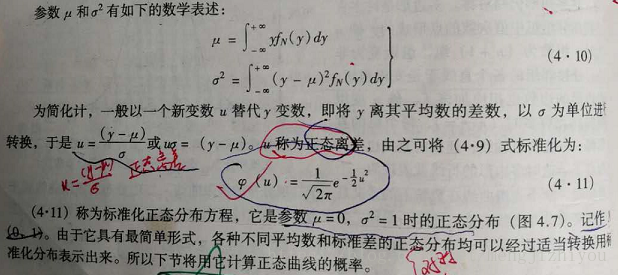 参数 μ 和σ² 有如下的数学表述:
μ = ∫_{-∞}^{+∞} y f_N(y) dy
σ² = ∫_{-∞}^{+∞} (y - μ)² f_N(y) dy
(4·10)
为简化计，一般以一个新变数 u 替代 y 变数，即将 y 离其平均数的差数，以 σ 为单位进
转换，于是 u = (y-μ)/σ 或 uσ = (y-μ)。u 称为正态离差，由之可将 (4·9) 式标准化为:
u = (y-μ)/σ 正态离差
φ(u) = 1/√(2π) e^{-½u²}
(4·11)
(4·11) 称为标准化正态分布方程，它是参数 μ=0，σ²=1 时的正态分布 (图 4.7)。记作
(0, 1)。由于它具有最简单形式，各种不同平均数和标准差的正态分布均可以经过适当转换用标
准化分布表示出来。所以下节将用它计算正态曲线的概率。